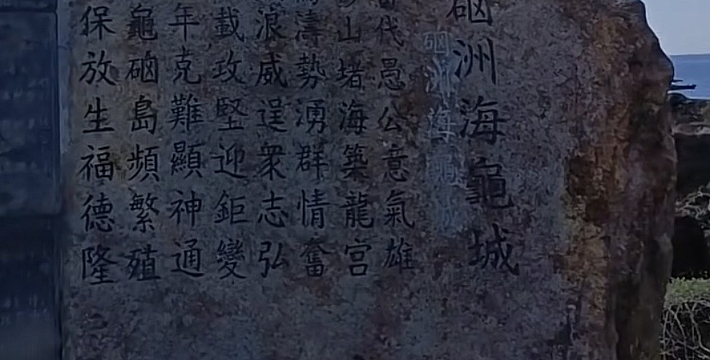 硇洲海龜城
代愚公意氣雄
山堵海築龍宮
濤勢湧群情奮
浪威逞眾志弘
載攻堅迎鉅變
年克難顯神通
龜硇島頻繁殖
保放生福德隆